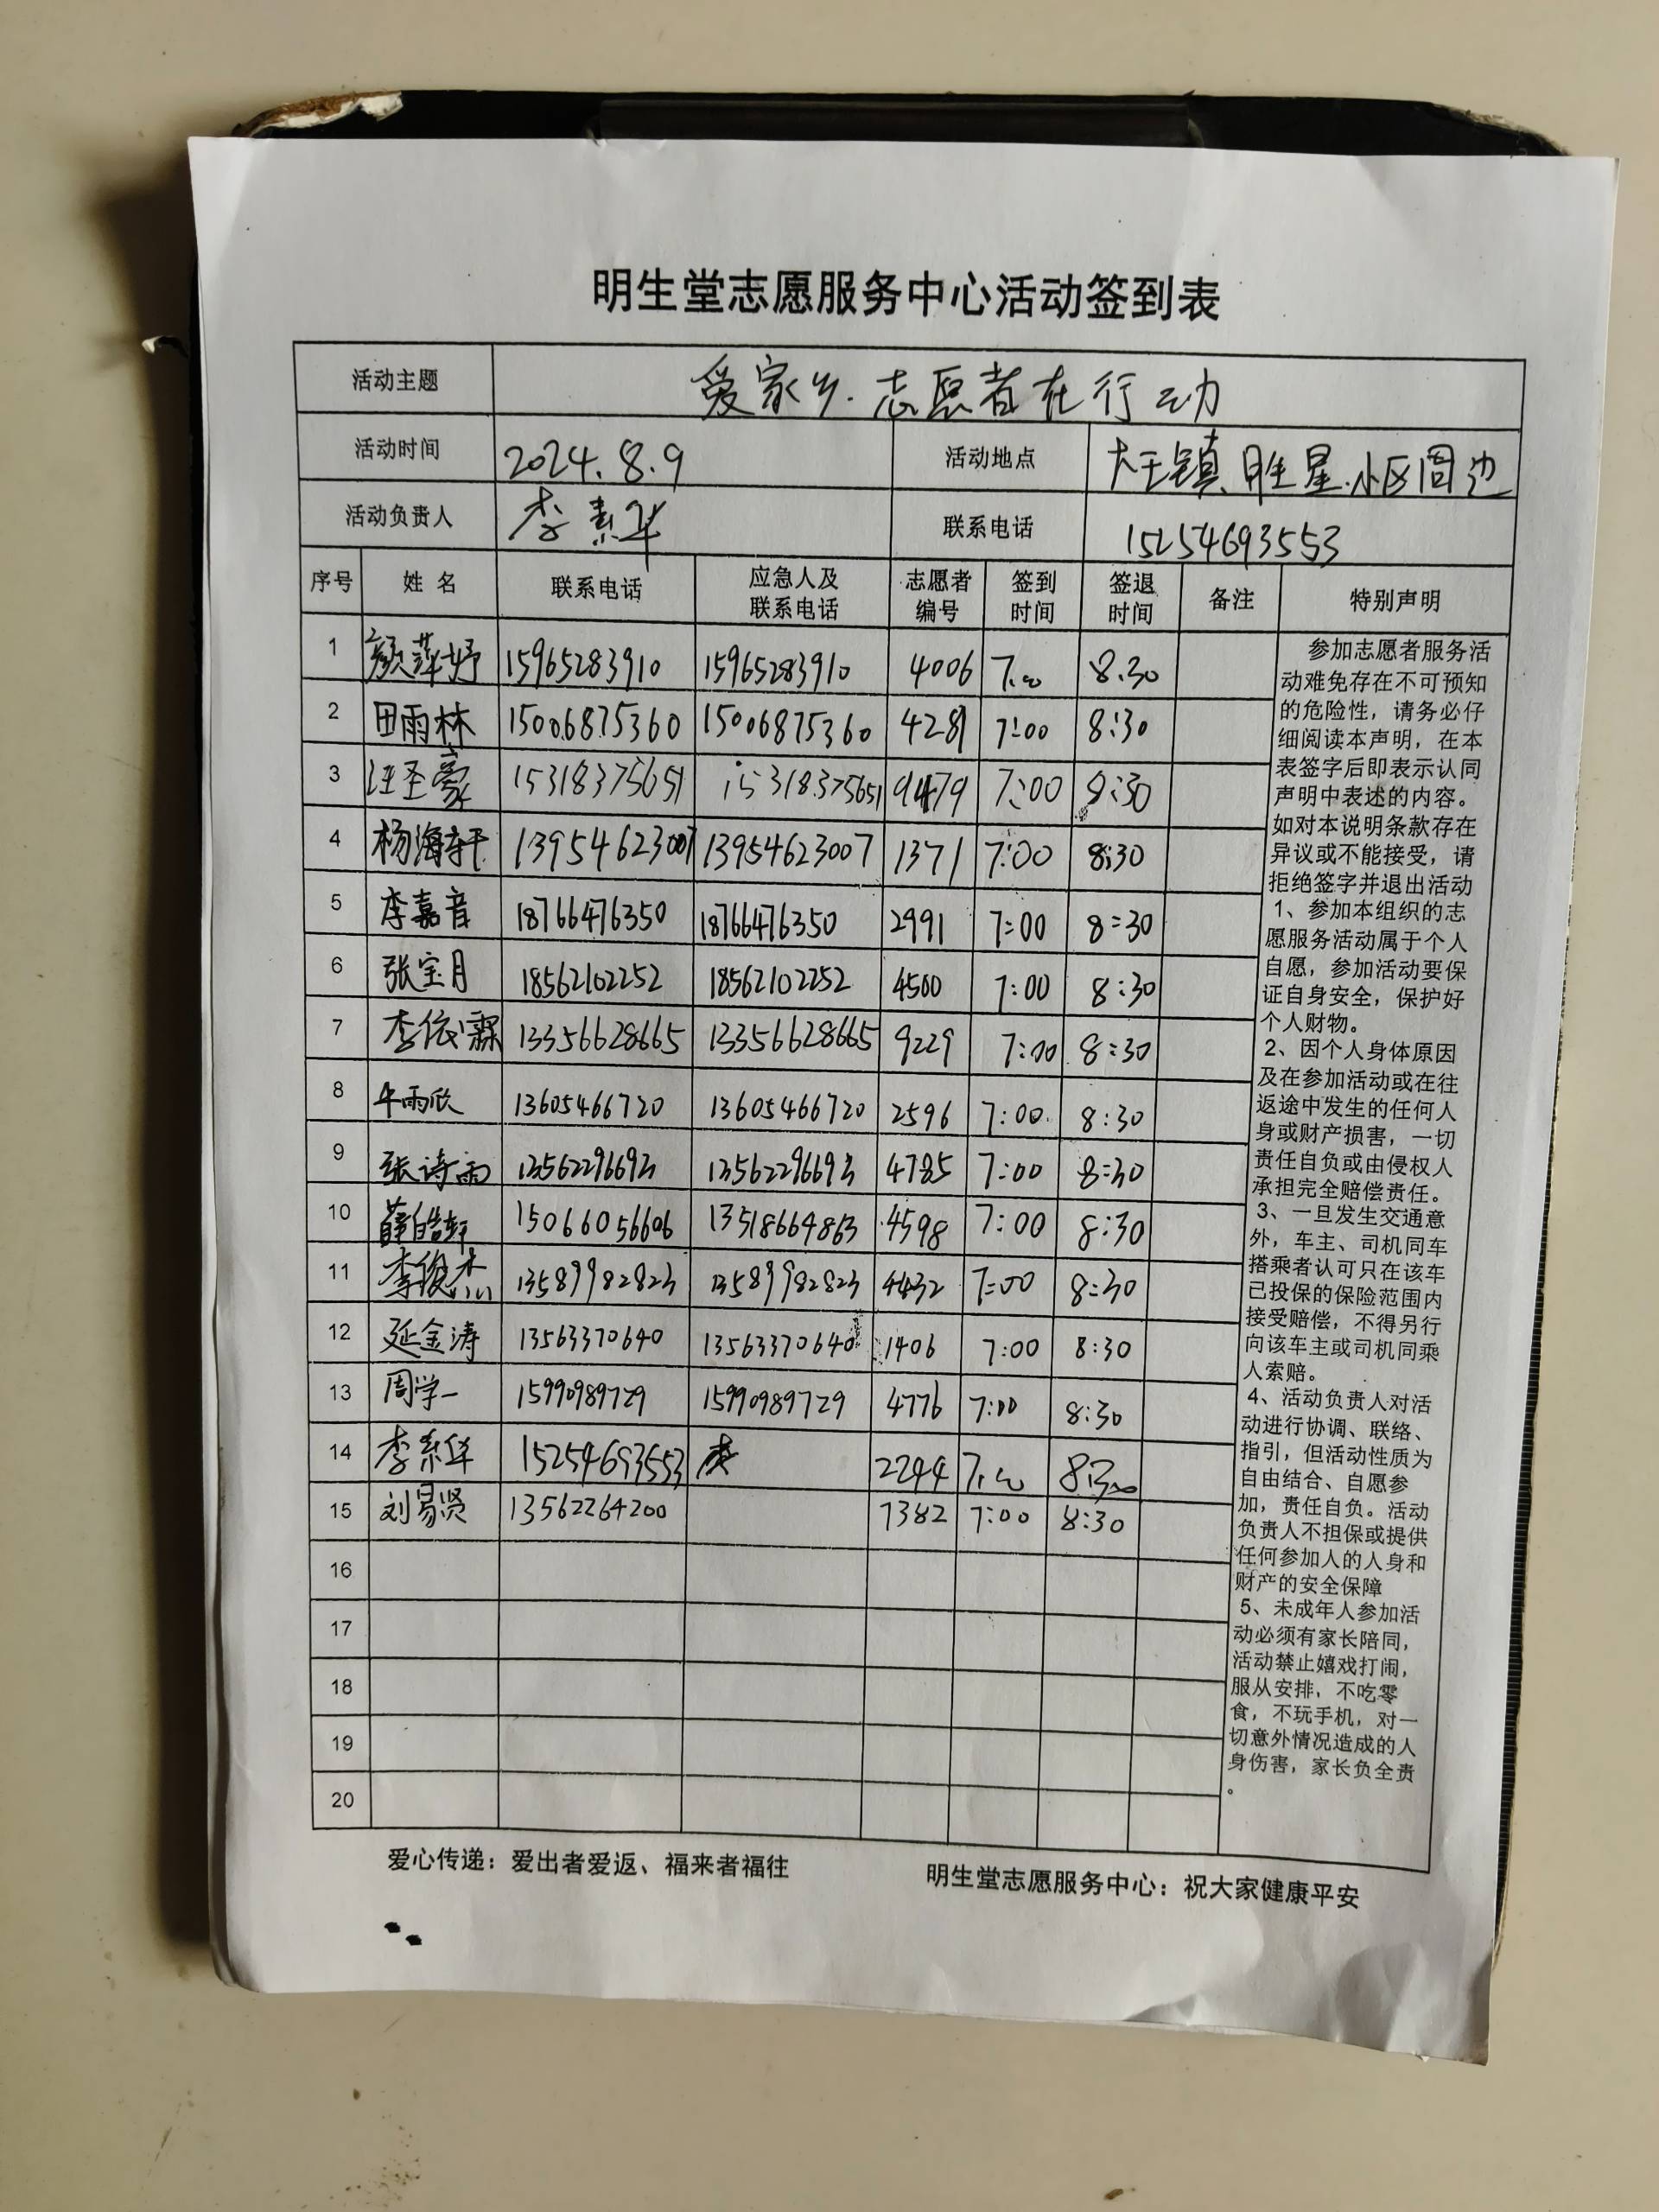 明生堂志愿服务中心活动签到表
活动主题 爱家乡.志愿者在行动
活动时间 2024.8.9 活动地点 大王镇.胜星.小区周边
活动负责人 李素华 联系电话 15254693553
序号 姓 名 联系电话 应急人及联系电话 志愿者编号 签到时间 签退时间 备注 特别声明
1 颜萍妤 15965283910 15965283910 4006 7.00 8.30
2 田雨林 15006875360 15006875360 4281 7:00 8:30
3 汪圣豪 15318375651 15318375651 9479 7:00 8:30
4 杨海轩 13954623007 13954623007 1371 7:00 8:30
5 李嘉音 18766476350 18766476350 2991 7:00 8:30
6 张宝月 18562102252 18562102252 4500 7:00 8:30
7 李依霖 13356628665 13356628665 9229 7:00 8:30
8 牛雨欣 13605466720 13605466720 2596 7:00 8:30
9 张诗雨 13562296693 13562296693 4785 7:00 8:30
10 薛皓轩 15066056606 13518664863 4598 7:00 8:30
11 李俊杰 13589982823 13589982823 4432 7:00 8:30
12 延金涛 13563370640 13563370640 1406 7:00 8:30
13 周学一 15990989729 15990989729 4776 7:00 8:30
14 李素华 15254693553 2244 7.00 8:30
15 刘易贤 13562264200 7382 7:00 8:30
16
17
18
19
20
参加志愿者服务活
动难免存在不可预知
的危险性，请务必仔
细阅读本声明，在本
表签字后即表示认同
声明中表述的内容。
如对本说明条款存在
异议或不能接受，请
拒绝签字并退出活动
1、参加本组织的志
愿服务活动属于个人
自愿，参加活动要保
证自身安全，保护好
个人财物。
2、因个人身体原因
及在参加活动或在往
返途中发生的任何人
身或财产损害，一切
责任自负或由侵权人
承担完全赔偿责任。
3、一旦发生交通意
外，车主、司机同车
搭乘者认可只在该车
已投保的保险范围内
接受赔偿，不得另行
向该车主或司机同乘
人索赔。
4、活动负责人对活
动进行协调、联络、
指引，但活动性质为
自由结合、自愿参
加，责任自负。活动
负责人不担保或提供
任何参加人的人身和
财产的安全保障
5、未成年人参加活
动必须有家长陪同，
活动禁止嬉戏打闹，
服从安排，不吃零
食，不玩手机，对一
切意外情况造成的人
身伤害，家长负全责
。
爱心传递：爱出者爱返、福来者福往 明生堂志愿服务中心：祝大家健康平安